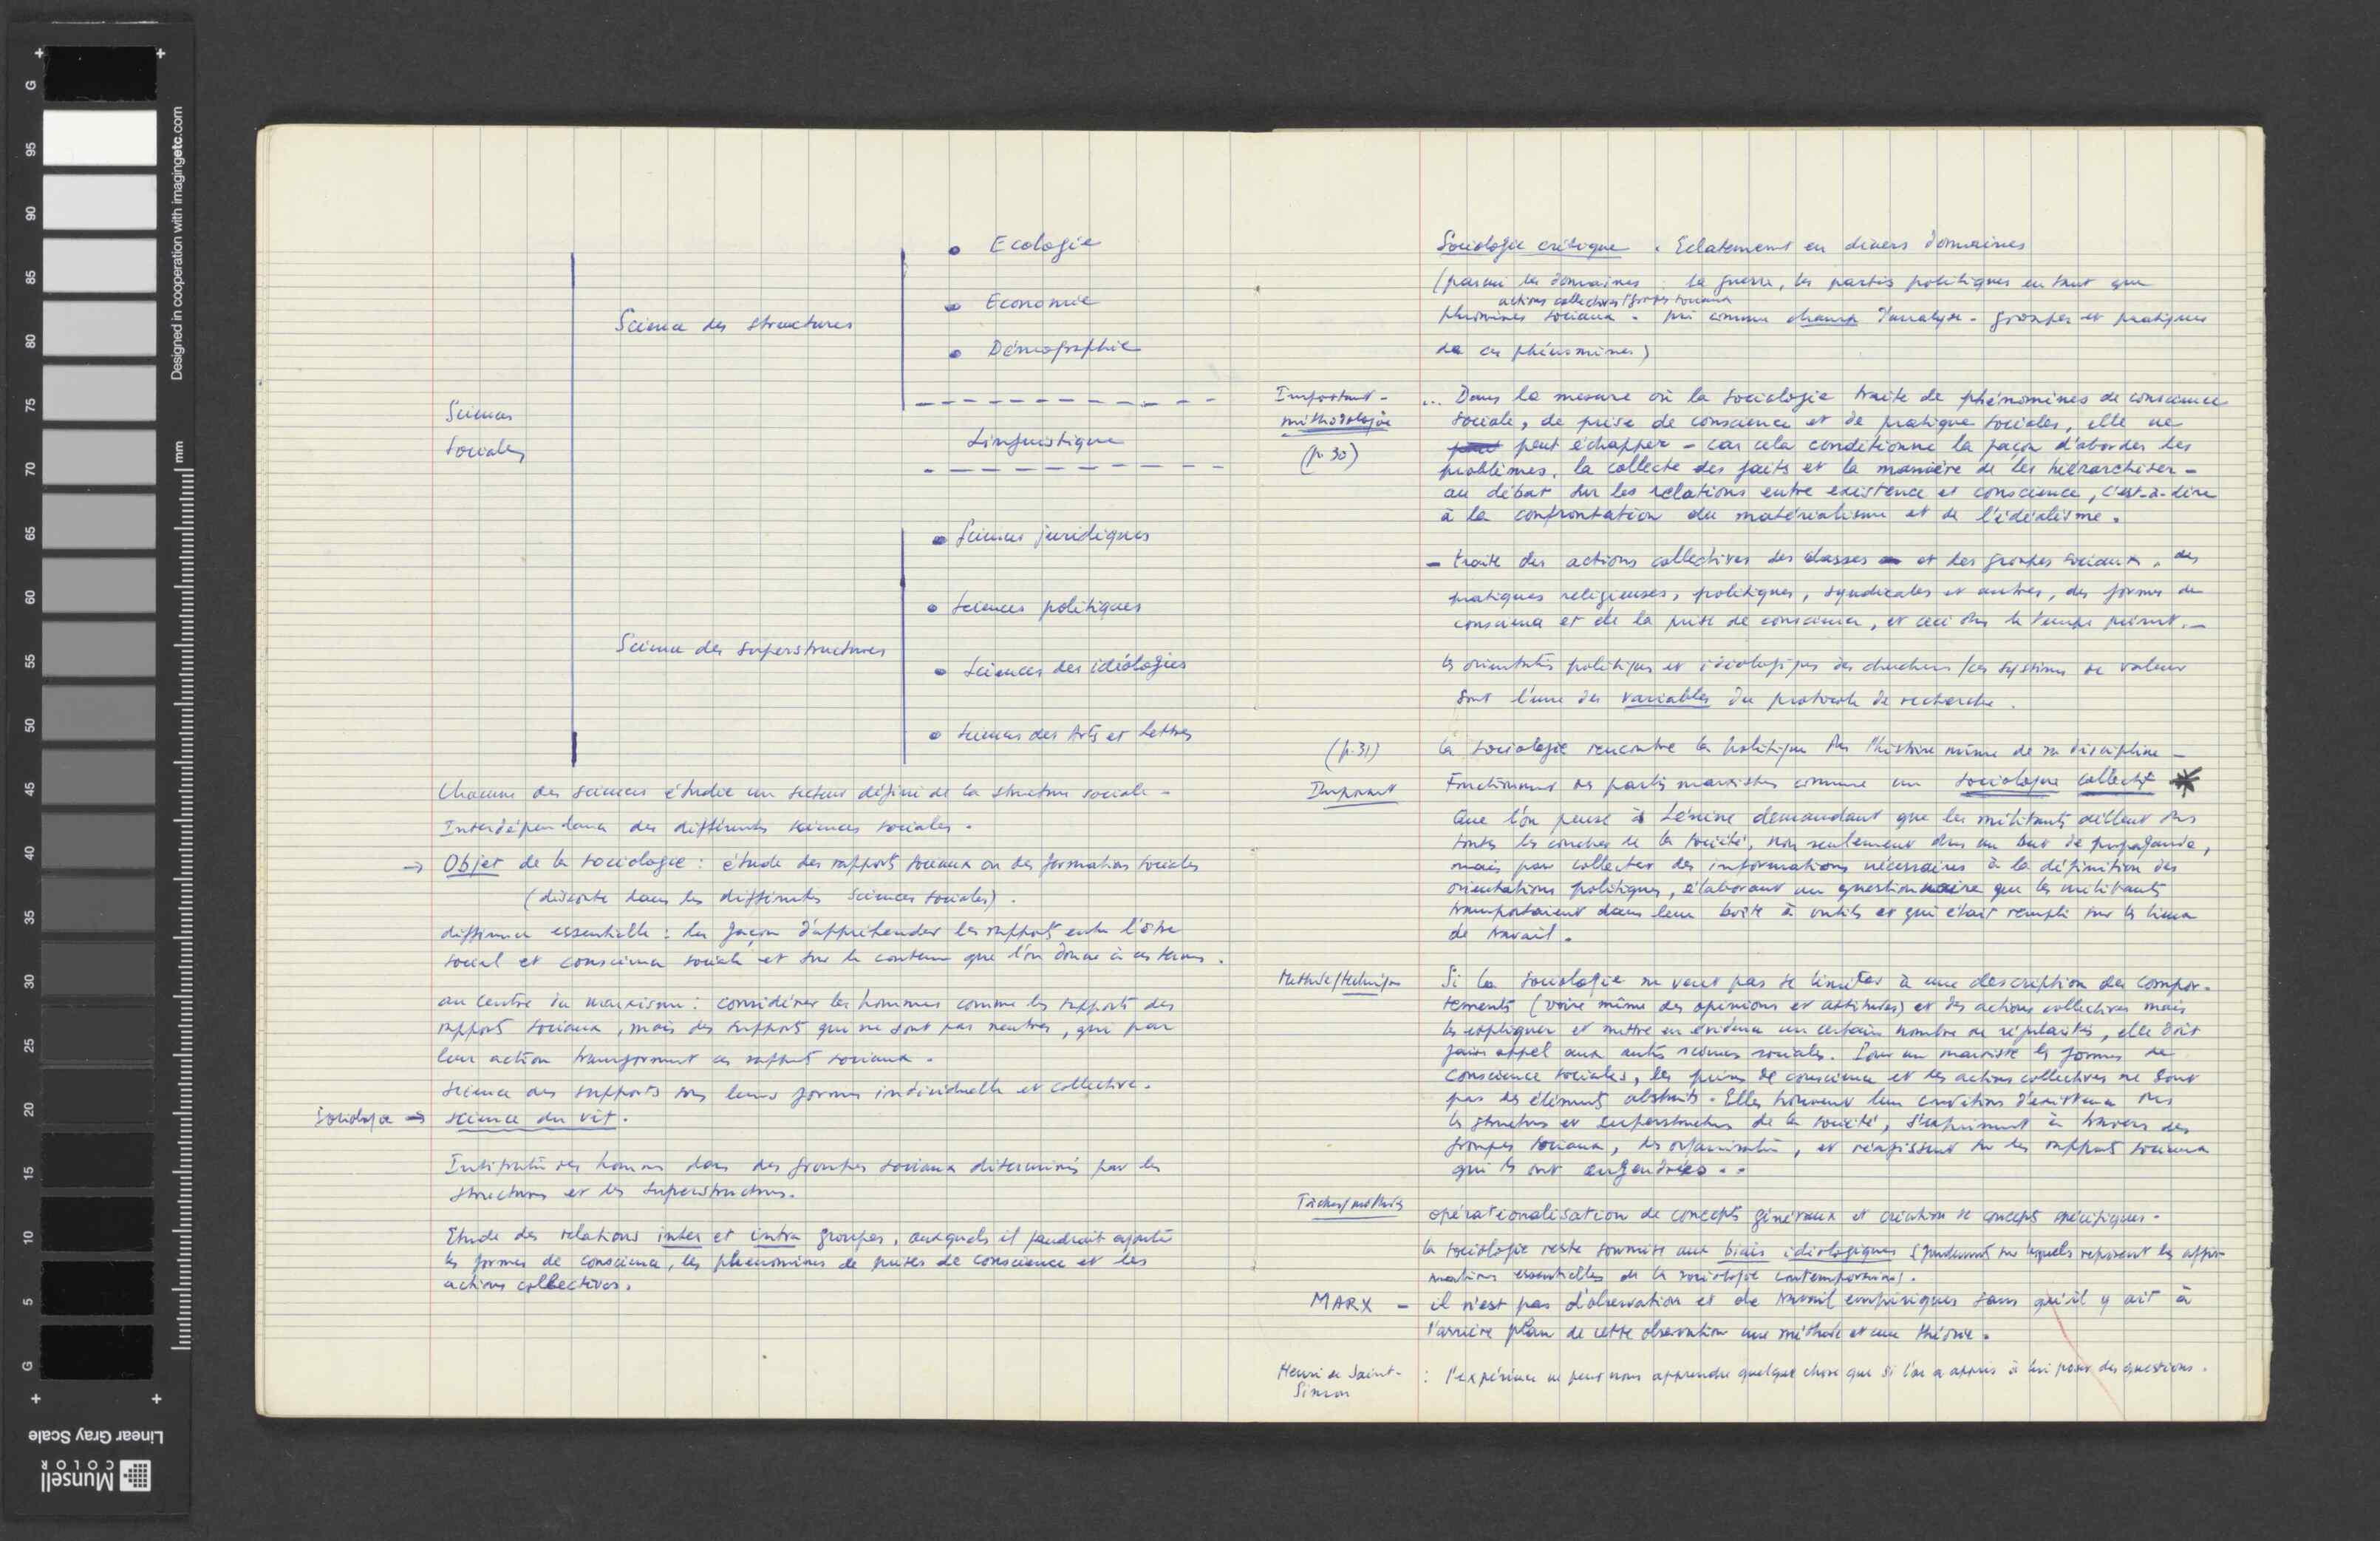 Ecologie
Economie
Science des structures
Démographie
Sciences
Sociales
Linguistique
Sciences juridiques
Sciences politiques
Science des superstructures
Sciences des idéologies
Sciences des Arts et Lettres
Chacune des sciences étudie un secteur défini de la structure sociale -
Interdépendance des différentes sciences sociales.
→ Objet de la sociologie : étude des rapports sociaux ou des formations sociales
(dans les différentes sciences sociales).
différence essentielle : la façon d'appréhender les rapports entre l'être
social et conscience sociale et sur le contenu que l'on donne à ces termes.
au centre du marxisme : considérer les hommes comme les supports des
rapports sociaux, mais des supports qui ne sont pas neutres, qui par
leur action transforment ces rapports sociaux.
science des supports sous leurs formes individuelle et collective.
Sociologie → science du vit.
des hommes dans des groupes sociaux déterminés par les
structures et les superstructures.
Etude des relations inter et intra groupes, auxquels il faudrait ajouter
les formes de conscience, les phénomènes de prises de conscience et les
actions collectives.
Sociologie critique . Eclatement en divers domaines
(parmi les domaines : la guerre, les partis politiques en tant que
actions collectives/groupes sociaux
phénomènes sociaux - pris comme champ d'analyse - groupes et pratiques
de ces phénomènes)
Important -
méthodologie
(p. 30)
... Dans la mesure où la sociologie traite de phénomènes de conscience
sociale, de prise de conscience et de pratique sociales, elle ne
peut échapper - car cela conditionne la façon d'aborder les
problèmes, la collecte des faits et la manière de les hiérarchiser -
au débat sur les relations entre existence et conscience, c'est-à-dire
à la confrontation du matérialisme et de l'idéalisme.
- traite des actions collectives des classes et des groupes sociaux, des
pratiques religieuses, politiques, syndicales et autres, des formes de
conscience et de la prise de conscience, et ceci dans le temps présent. -
les orientations politiques et idéologiques des chercheurs/ces systèmes de valeur
sont l'une des variables du protocole de recherche.
(p. 31)
la sociologie rencontre la politique dans l'histoire même de sa discipline -
Important
Fonctionnement des partis marxistes comme un sociologue collectif *
Que l'on pense à Lénine demandant que les militants aillent dans
toutes les couches de la société, non seulement dans un but de propagande,
mais pour collecter des informations nécessaires à la définition des
orientations politiques, élaborant un questionnaire que les militants
transportaient dans leur boîte à outils et qui était rempli sur les lieux
de travail.
Méthode/technique
Si la sociologie ne veut pas se limiter à une description des compor-
tements (voire même des opinions et attitudes) et des actions collectives mais
les expliquer et mettre en évidence un certain nombre de régularités, elle doit
faire appel aux autres sciences sociales. Pour un marxiste les formes de
conscience sociales, les prises de conscience et les actions collectives ne sont
pas des éléments abstraits. Elles trouvent leur conditions d'existence dans
les structures et superstructures de la société, s'expriment à travers des
groupes sociaux, des organisations, et réagissent sur les rapports sociaux
qui les ont engendrées..
Tâches/méthodes
opérationalisation de concepts généraux et création de concepts spécifiques -
la sociologie reste soumise aux biais idéologiques (fondements sur lesquels reposent les affir-
mations essentielles de la sociologie contemporaine).
MARX - il n'est pas d'observation et de travail empiriques sans qu'il y ait à
l'arrière plan de cette observation une méthode et une théorie.
Henri de Saint-
Simon
: l'expérience ne peut nous apprendre quelque chose que si l'on a appris à lui poser des questions.
Designed in cooperation with imagingetc.com
mm
G
95
90
85
80
75
70
65
60
55
50
45
40
35
30
25
20
15
10
5
G
Linear Gray Scale
Munsell
COLOR